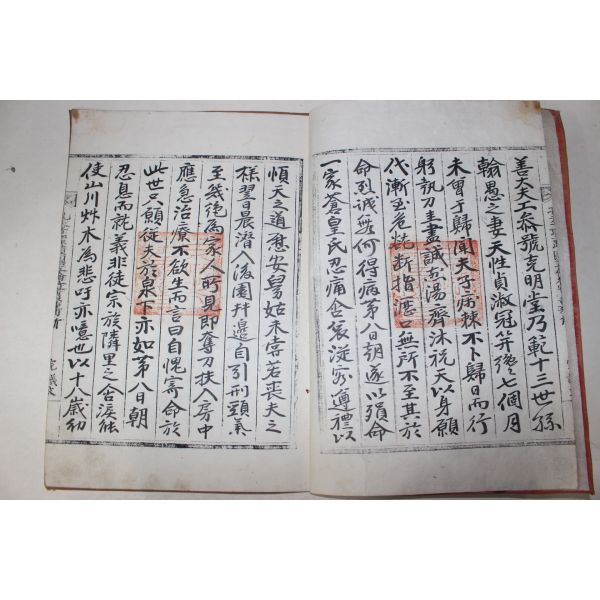 善大夫工參號克明堂乃範十三世孫
翰愚之妻天性貞淑冠笄終七個月
未畢于歸聞夫子病棘不卜歸日而行
躬執刀圭盡誠藥湯齊沐祝天以身願
代漸至危境斷指灌口無所不至其於
命烈誠無何得病第八日朝遂以殞命
一家蒼皇氏忍痛含哀送終遵禮以
順天之道慰安舅姑未嘗若喪夫之
樣翌日晨潛入後園井邊自引刑頸氣
至幾絶爲家人所見即奪刀扶入房中
應急治療不欲生而言曰自悅寄命於
此世只願從夫於泉下亦如第八日朝
忍息而就義非徒宗族隣里之含淚能
使山川艸木爲悲吁亦噫也以十八歲初
完議文